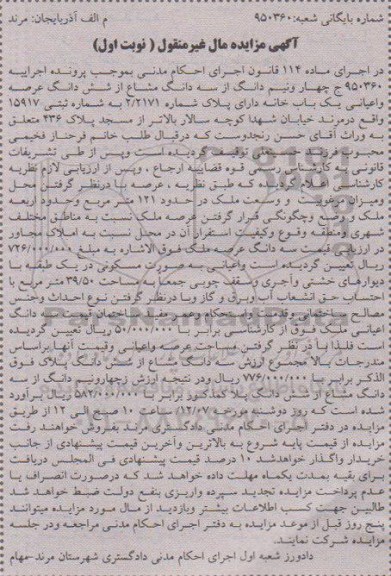 شماره بایگانی شعبه: ۹۵۰۳۶۰ م الف آذربایجان: مرند
آگهی مزایده مال غیرمنقول ( نوبت اول)
در اجرای ماده ۱۱۴ قانون اجرای احکام مدنی بموجب پرونده اجراییه
۹۵۰۳۶۰ ج چهار ونیم دانگ از سه دانگ مشاع از شش دانگ عرصه
واعیانی یک باب خانه دارای پلاک شماره ۲/۲۱۷۱ به شماره ثبتی ۱۵۹۱۷
واقع درمرند خیابان شهدا کوچه سالار بالاتر از مسجد پلاک ۴۳۶ متعلق
به وراث آقای حسن رنجدوست که درقبال طلب خانم فرحناز فخیمی
محبوب مرند توقیف گردیده است وپس از طی تشریفات
قانونی به کارشناس رسمی قوه قضاییه ارجاع ، وپس از ارزیابی لازم نظریه
کارشناسی اعلام گردیده که طبق نظریه ، عرصه با درنظر گرفتن محل
ومیزان مرغوبیت و وسعت ملک در حدود ۱۲۱ متر مربع وحدود اربعه
ملک و وضع وچگونگی قرار گرفتن عرصه ملک نسبت به مناطق مختلف
شهری ومنطقه وقوع وکیفیت استقرار آن در محل نسبت به املاک مجاور
در ارزیابی قیمت سه دانگ عرصه ملک فوق الاشاره به مبلغ ۷۲۶/۰۰۰/۰۰۰
ریال تعیین گردیده است واعیانی به صورت مسکونی در یک طبقه با
دیوارهای خشتی وآجری وسقف چوبی جمعا به مساحت ۳۹/۵۰ متر مربع با
احتساب حق انشعاب آب وبرق و گاز وبا درنظر گرفتن نوع احداث وجنس
مصالح ساختمانی وقدمت واستحکام وعمر مفید سه دانگ
اعیانی ملک فوق از کارشناسی برابر با ۵۰/۰۰۰/۰۰۰ ریال تعیین گردیده
است فلذا با در نظر گرفتن مساحت عرصه واعیانی وقیمت آنها براساس
مندرجات بالا مجموع ارزش سه دانگ مشاع از شش دانگ پلاک فوق
الذکر برابر با ۷۷۶/۰۰۰/۰۰۰ ریال ودر نتیجه ارزش چهارونیم دانگ از سه
دانگ مشاع از شش دانگ پلاک مذکور برابر با ۵۸۲/۰۰۰/۰۰۰ ریال برآورد
شده است که روز دوشنبه مورخ ساعت ۱۰ صبح الی ۱۲ از طریق
مزایده در دفتر اجرای احکام مدنی دادگستری مرند به فروش خواهند رفت
مزایده از قیمت پایه شروع به بالاترین وآخرین قیمت پیشنهادی از جانب
خریدار واگذار خواهدشد ۱۰ درصد قیمت پیشنهادی فی المجلس دریافت
برای بقیه بمدت یکماه مهلت داده خواهد شد که درصورت انصراف یا
عدم پرداخت مزایده تجدید سپرده واریزی بنفع دولت ضبط خواهد شد
طالبین جهت کسب اطلاعات بیشتر وبازدید از مال مورد مزایده میتوانند
پنج روز قبل از موعد مزایده به دفتر اجرای احکام مدنی مراجعه ودر جلسه
مزایده شرکت نمایند.
دادورز شعبه اول اجرای احکام مدنی دادگستری شهرستان مرند-مهام